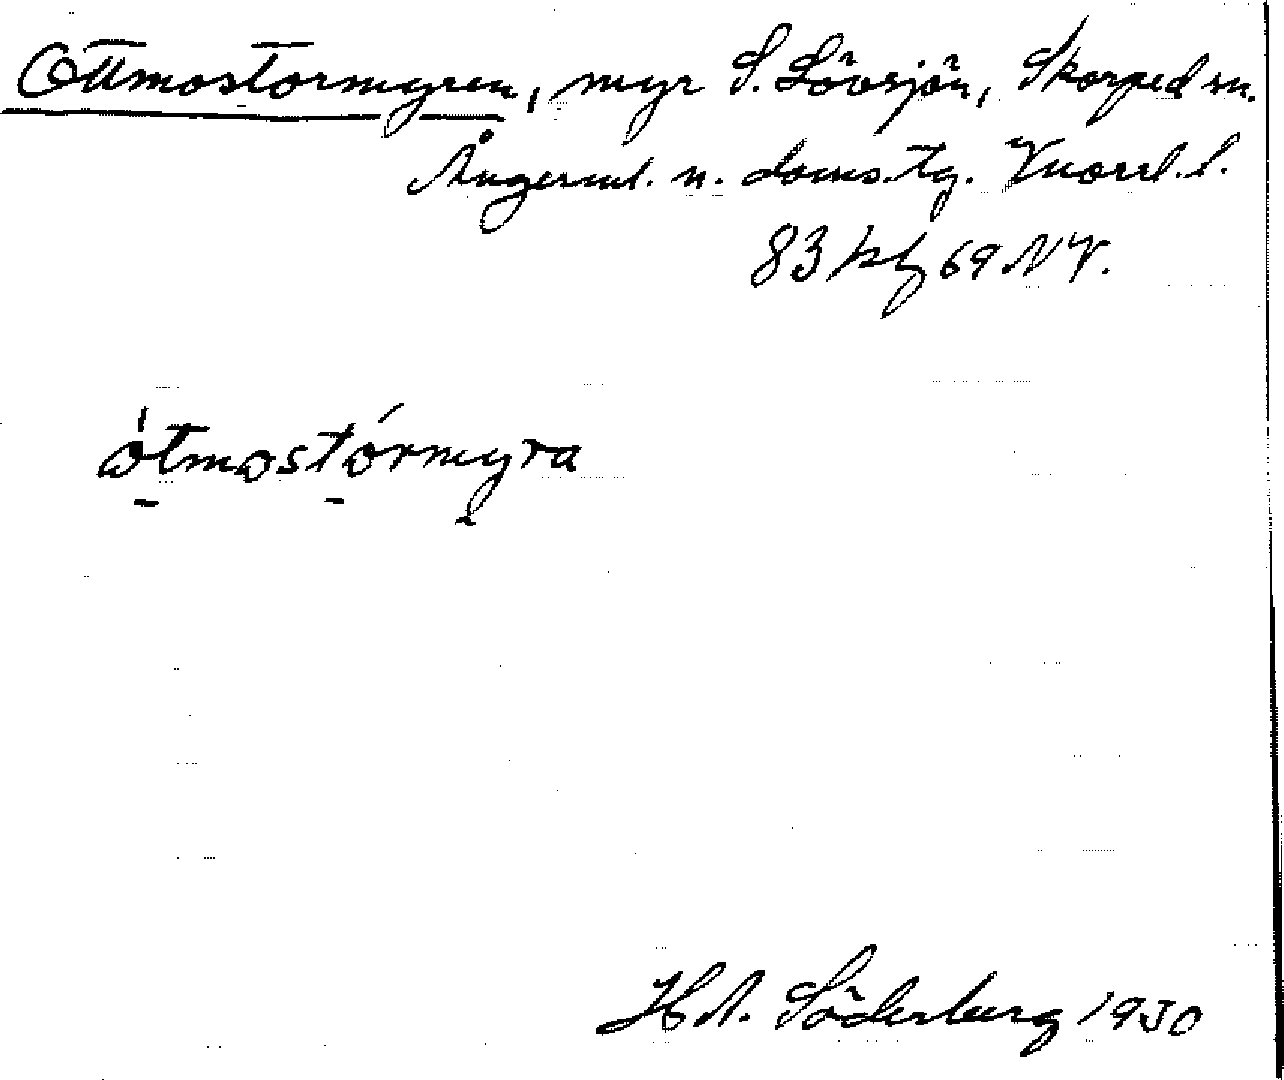 Ottmostormyren, myr S. Lövsjön, Skorped sn.
Ångerml. n. doms.tg. Vnorrl. l.
83 kbl 69 NV.
òtmostórmyra
H A. Söderberg 1930